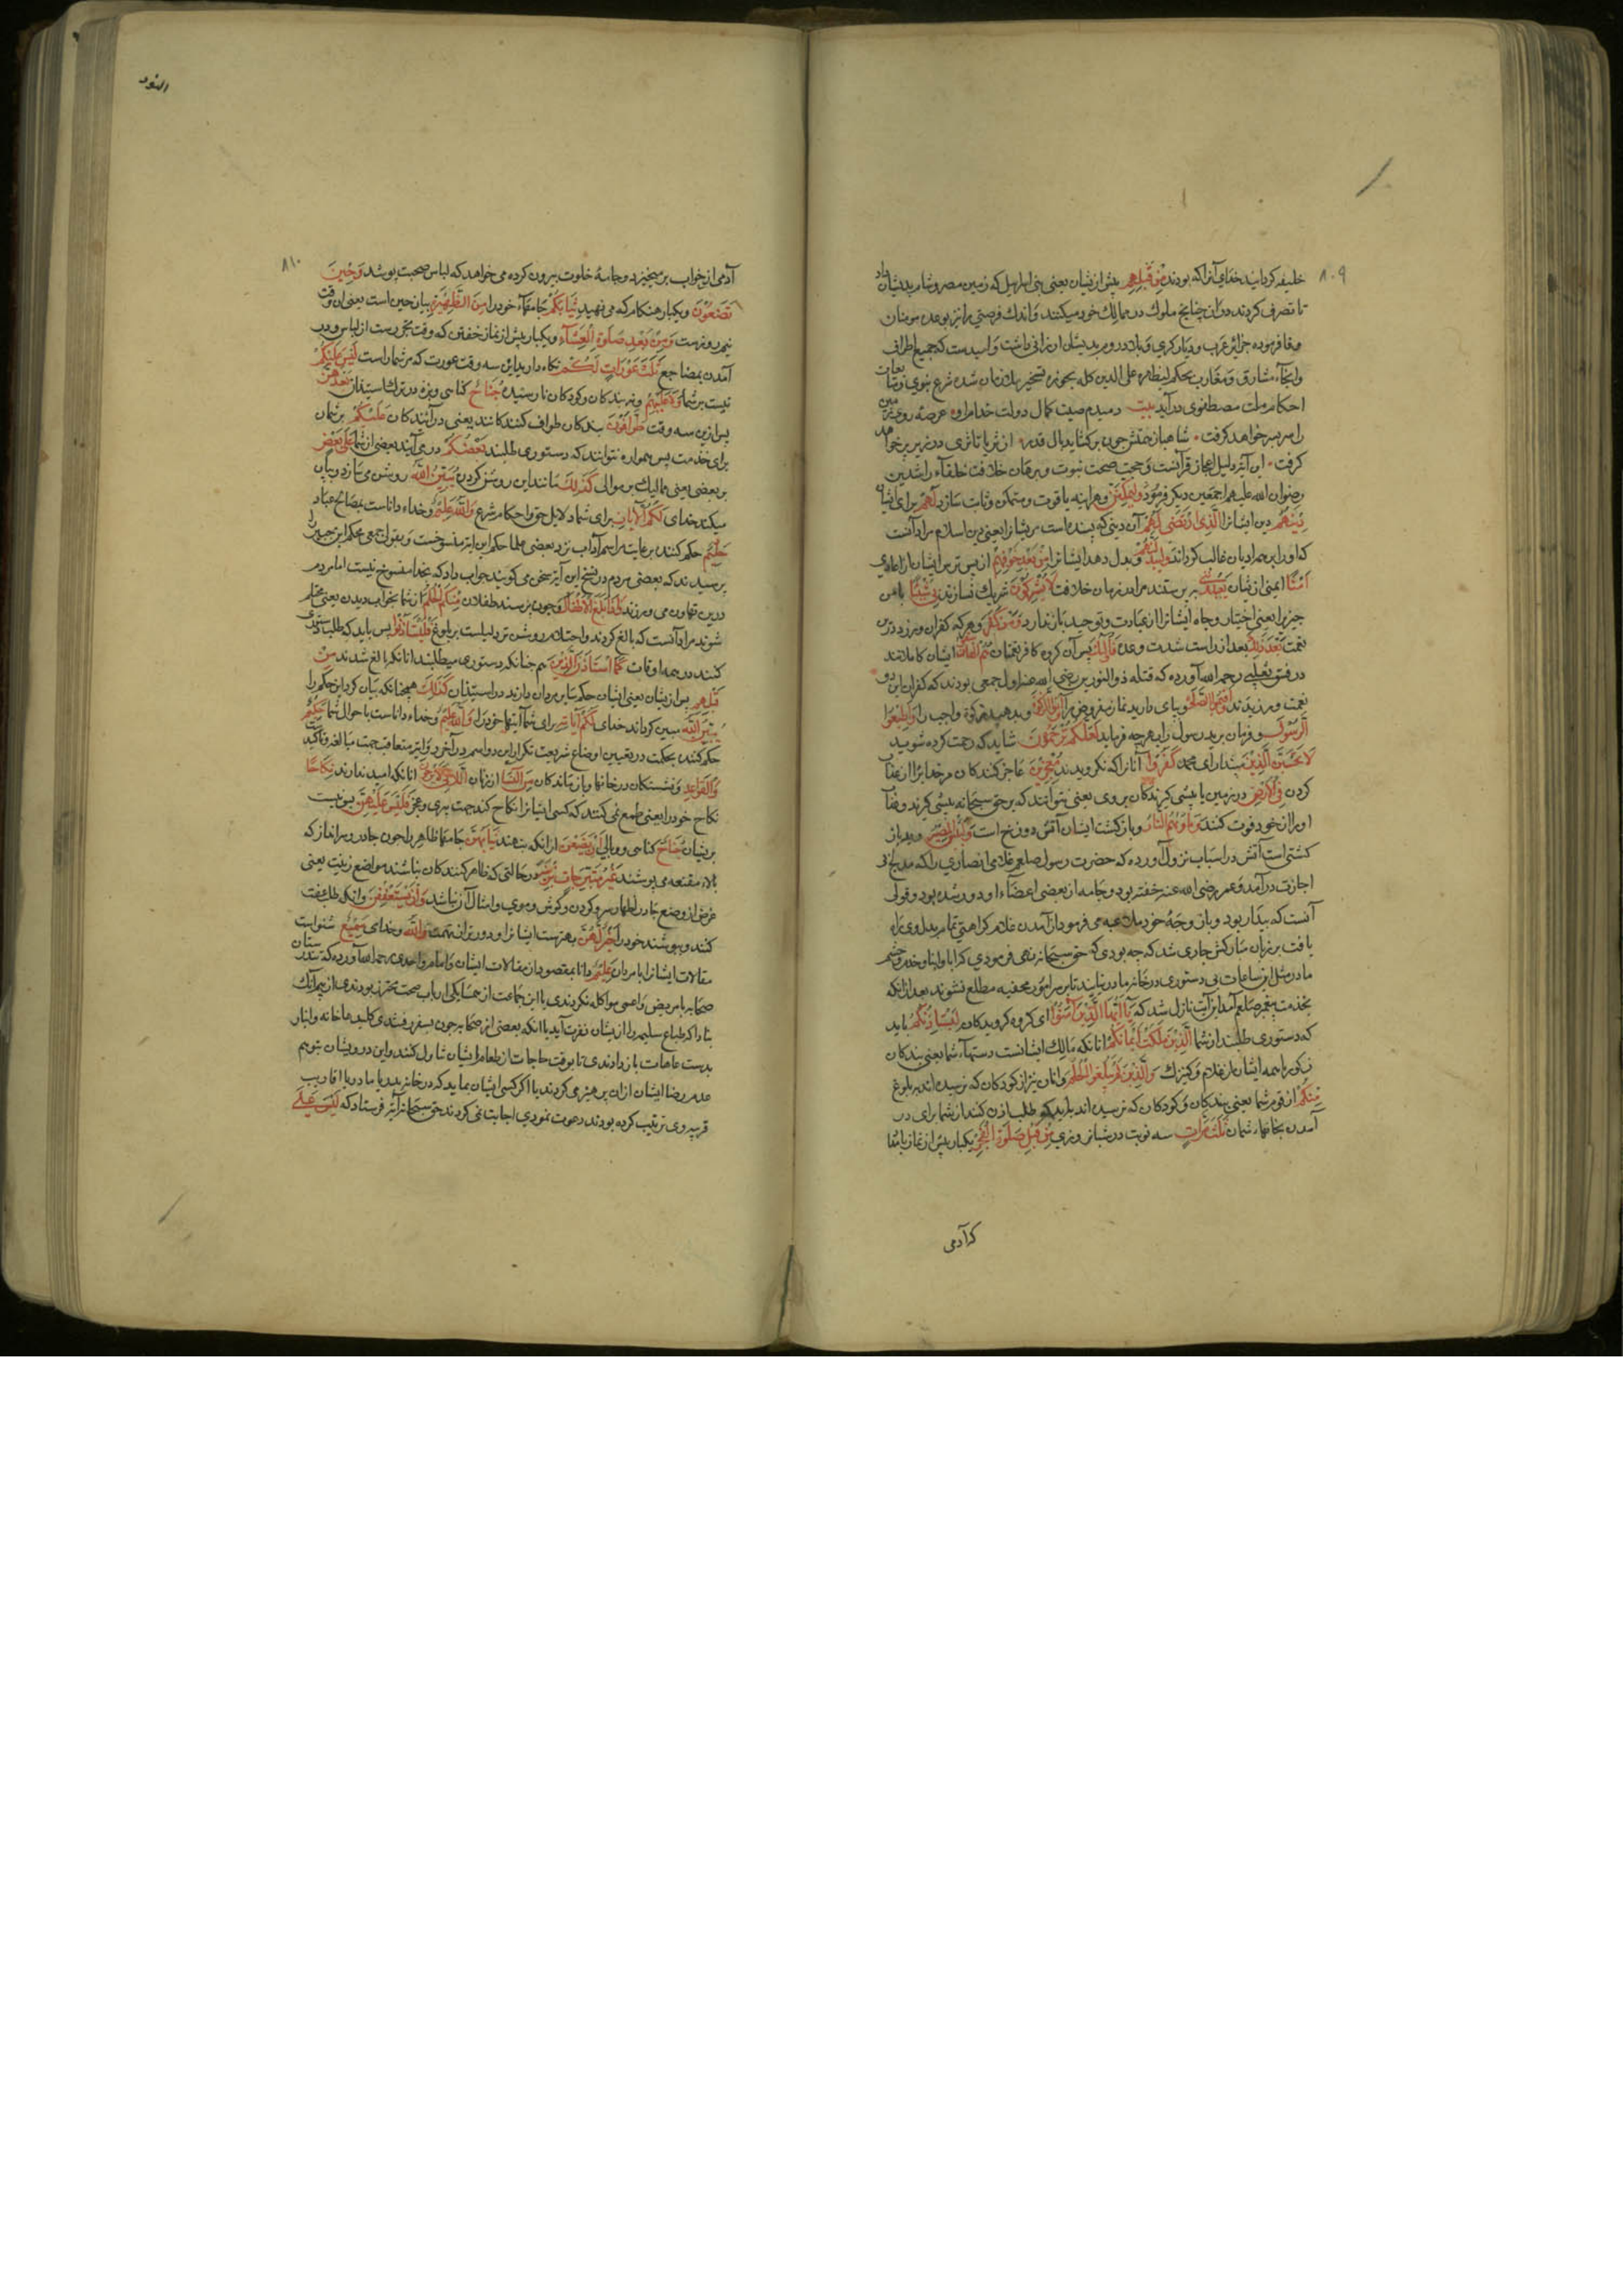 ۸۰۹
خلیفه کردانید خدای آنرا که بودند مِنْ قَبْلِهِمْ پیش از یشان یعنی بنی اسراییل که زمین مصر و شام بدیشان داد
تا تصرف کردند در آن چنانچه ملوک در ممالک خود میکنند و اندک فرصتی را نیز بوعده مومنان
وفا فرموده جزایر عرب و دیار کسری و بلاد روم بدیشان ارزانی داشت و امیدست که جمیع اطراف
و انحاء مشارق و مغارب بحکم لیظهره علی الدین کله بحوزه تسخیر شرع نبوی و
احکام ملت مصطفوی در آید بیت دمیدم صیت کمال دولت خدام او عرصه روی زمین
را سر بسر خواهد کرفت شاهباز همتش چون برکشاید بال قدر از ثریا تا ثری در زیر پر خواهد
کرفت این آیة دلیل اعجاز قرآنست و حجت صحت نبوت و برهان خلافت خلفاء راشدین
رضوان الله علیهم اجمعین دیکر فرمود وَلَيُمَكِّنَنَّ و هر آینه با قوت و متمکن و ثابت سازد لَهُمْ برای ایشان
دِينَهُمُ دین ایشانرا الَّذِي ارْتَضَى لَهُمْ آن دینی که پسندیده است برایشان یعنی دین اسلام مراد آنست
که او را بر همه ادیان غالب کرداند وَلَيُبَدِّلَنَّهُمْ و بدل دهد ایشانرا مِنْ بَعْدِ خَوْفِهِمْ از پس ترس ایشان از اعادی
أَمْنًا ایمنی از یشان يَعْبُدُونَنِي بپرستند مرا در زمان خلافت لَا يُشْرِكُونَ شریک نسازند بِي شَيْئًا با من
چیزیرا یعنی اختیار و جاه ایشانرا از عبادت و توحید باز ندارد وَمَنْ كَفَرَ و هر که کفران ورزد درین
نعمت بَعْدَ ذَلِكَ بعد از وعده فَأُولَئِكَ پس آن کروه کافر نعمتان هُمُ الْفَاسِقُونَ ایشان کاملانند
در فسق ثعلبی رحمه الله آورده که قتله ذو النورین رضی الله عنه اول جمعی بودند که کفران این
نعمت ورزیدند وَأَقِيمُوا الصَّلَوةَ و بپای دارید نماز مفروض را وَآتُوا الزَّكَوةَ و بدهید زکوة واجب را وَأَطِيعُوا
الرَّسُولَ و فرمان برید رسول را بهرچه فرماید لَعَلَّكُمْ تُرْحَمُونَ شاید که رحمت کرده شوید
لَا تَحْسَبَنَّ الَّذِينَ كَفَرُوا مپندار ای محمد آنانرا که نکرویدند مُعْجِزِينَ عاجز کنندکان مر خدایرا از عذاب
کردن فِي الْأَرْضِ در زمین یا پیشی کیرندکان بر وی یعنی نتوانند که بر حق سبحانه پیشی کیرند و
او را از خود فوت کنند وَمَأْوَاهُمُ النَّارُ و باز کشت ایشان آتش دوزخ است وَلَبِئْسَ الْمَصِيرُ و بد باز
کشتی است آتش در اسباب نزول آورده که حضرت رسول صلعم غلامی انصاری را که مدلج
اجازت در آمد و عمر رضی الله عنه خفته بود و جامه از بعضی اعضاء او دور شده بود و قولی
آنست که بیدار بود و با زوجهٔ خود ملاعبه می فرمود از آمدن غلام کراهتی تمام بدل وی راه
یافت بر زبان مبارکش جاری شد که چه بودی که حق سبحانه نهی فرمودی که ابا و ابنا و خدم و حشم
ما در مثل این ساعات بی دستوری در خانه ما در نیایند تا بر سر امور مخفیه مطلع نشوند بعد ازانکه
بخدمت پیغمبر صلعم آمد این آیت نازل شد که يَا أَيُّهَا الَّذِينَ آمَنُوا ای کروه کرویدکان لِيَسْتَأْذِنْكُمُ باید
که دستوری طلبند از شما الَّذِينَ مَلَكَتْ أَيْمَانُكُمْ آنانکه مالک ایشانست دستهاء شما یعنی بندکان
ایشان از غلام و کنیزک وَالَّذِينَ لَمْ يَبْلُغُوا الْحُلُمَ و آنان نیز از کودکان که نرسیده اند ببلوغ
مِنْكُمْ از قوم شما یعنی بندکان و کودکان که نرسیده اند باید که طلب اذن کنند از شما برای در
آمدن بخانهاء شمایان ثَلَاثَ مَرَّاتٍ سه نوبت در شبانروزی مِنْ قَبْلِ صَلَوةِ الْفَجْرِ یکبار پیش از نماز بامداد
که آدمی
النور
۸۱۰
آدمی از خواب بر میخیزد و جامهٔ خلوت بیرون کرده می خواهد که لباس صحبت پوشد وَحِينَ
تَضَعُونَ و یکبار هنکام که می نهید ثِيَابَكُمْ جامهاء خود را مِنَ الظَّهِيرَةِ بیان حین است یعنی آن وقت
نیم روزست وَمِنْ بَعْدِ صَلَوةِ الْعِشَاءِ و یکبار پس از نماز خفتن که وقت تجردست از لباس و در
آمدن بمضاجع ثَلَاثُ عَوْرَاتٍ لَكُمْ نکاه دارید این سه وقت عورت که مر شماراست لَيْسَ عَلَيْكُمْ
نیست بر شما وَلَا عَلَيْهِمْ و نه بر بندکان و کودکان نارسیده جُنَاحٌ کناهی و بزه در ترک استیذان بَعْدَهُنَّ
پس از این سه وقت طَوَّافُونَ بندکان طواف کنندکانند یعنی در آیندکان عَلَيْكُمْ بر شمایان
برای خدمت پس همواره نتوانند که دستوری طلبند بَعْضُكُمْ در می آیند بعضی از شما عَلَى بَعْضٍ
بر بعضی یعنی ممالیک بر موالی كَذَلِكَ مانند این روشن کردن يُبَيِّنُ اللَّهُ روشن می سازد و بیان
میکند خدای لَكُمُ الْآيَاتِ برای شما دلایل حق و احکام شرع وَاللَّهُ عَلِيمٌ و خداء داناست بمصالح عباد
حَكِيمٌ حکم کننده بر عایت مراسم آداب نزد بعضی علما حکم این آیة منسوخست و بقول جمعی محکم ابن جبیر را
پرسیدند که بعضی مردم در نسخ این آیة سخن می کویند جواب داد که بخدا منسوخ نیست اما مردم
درین تهاون می ورزند وَإِذَا بَلَغَ الْأَطْفَالُ و چون برسند طفلان مِنْكُمُ الْحُلُمَ از شما بخواب دیدن یعنی محتلم
شوند مراد آنست که بالغ کردند و احتلام روشن تر دلیلیست بر بلوغ فَلْيَسْتَأْذِنُوا پس باید که طلب دستوری
کنند در همه اوقات كَمَا اسْتَأْذَنَ الَّذِينَ هم چنانکه دستوری میطلبند آنانکه بالغ شدند مِنْ
قَبْلِهِمْ پس از یشان یعنی اینان حکم سایر مردان دارند در استیذان كَذَلِكَ همچنانکه بیان کرد این حکم را
يُبَيِّنُ اللَّهُ مبین کرداند خدای لَكُمْ آيَاتِهِ برای شما آیتهای خود را وَاللَّهُ عَلِيمٌ و خداء داناست باحوال شما حَكِيمٌ
حکم کننده بحکمت در تعیین اوضاع شریعت تکرار این دو اسم در آخر دو آیة متعاقب جهت مبالغه و تاکید
وَالْقَوَاعِدُ و نشستکان در خانها و باز ماندکان مِنَ النِّسَاءِ از زنان اللَّاتِي لَا يَرْجُونَ آنانکه امید ندارند نِكَاحًا
نکاح خود را یعنی طمع نمی کنند که کسی ایشانرا نکاح کند جهت پیری و عجز فَلَيْسَ عَلَيْهِنَّ پس نیست
بریشان جُنَاحٌ کناهی و وبالی أَنْ يَضَعْنَ از انکه بنهند ثِيَابَهُنَّ جامهاء ظاهر را چون چادر و سرانداز که
بالاء مقنعه می پوشند غَيْرَ مُتَبَرِّجَاتٍ بِزِينَةٍ در حالتی که ظاهر کنندکان نباشند مواضع زینت یعنی
غرض از وضع چادر اظهار سر و کردن و کوش و موی و امثال آن نباشد وَأَنْ يَسْتَعْفِفْنَ و انکه طلب عفت
کنند و بپوشند خود را خَيْرٌ لَهُنَّ بهترست ایشانرا و دورتر از تهمت وَاللَّهُ و خدای سَمِيعٌ شنواست
مقالات ایشانرا با مردان عَلِيمٌ دانا بمقصود از مقالات ایشان و امام واحدی رحمه الله آورده که تندرستان
صحابه با مریض و اعمی مواکله نکردندی با این جماعت از همسایکی ارباب صحت محترز بودندی از بیم آنکه
مبادا که طباع سلیمه را از یشان نفرت آید یا آنکه بعضی از صحابه چون بسفر رفتندی کلید خانه و انبار
بدست عاهات باز دادندی تا بوقت حاجات از طعام ایشان تناول کنند و این درویشان بتوهم
عدم رضا ایشان از ان پرهیز می کردند یا اکر کسی ایشان نماید که در خانه پدر یا مادر یا اقارب
قریبه وی ترتیب کرده بودند دعوت نمودی اجابت نمی کردند حق سبحانه آیة فرستاد که لَيْسَ عَلَى